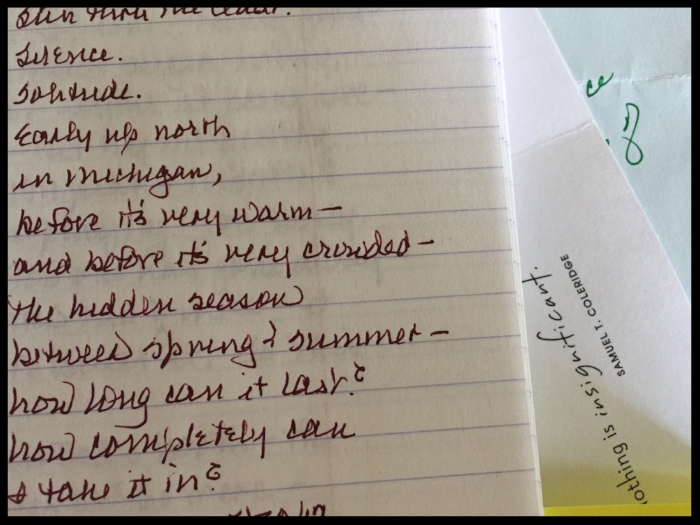 thru the cedar.
Silence.
Solitude.
Early up north
in michigan,
before it's very warm—
and before it's very crowded—
the hidden season
between spring & summer—
how long can it last?
how completely can
I take it in?
othing is insignificant.
SAMUEL T. COLERIDGE